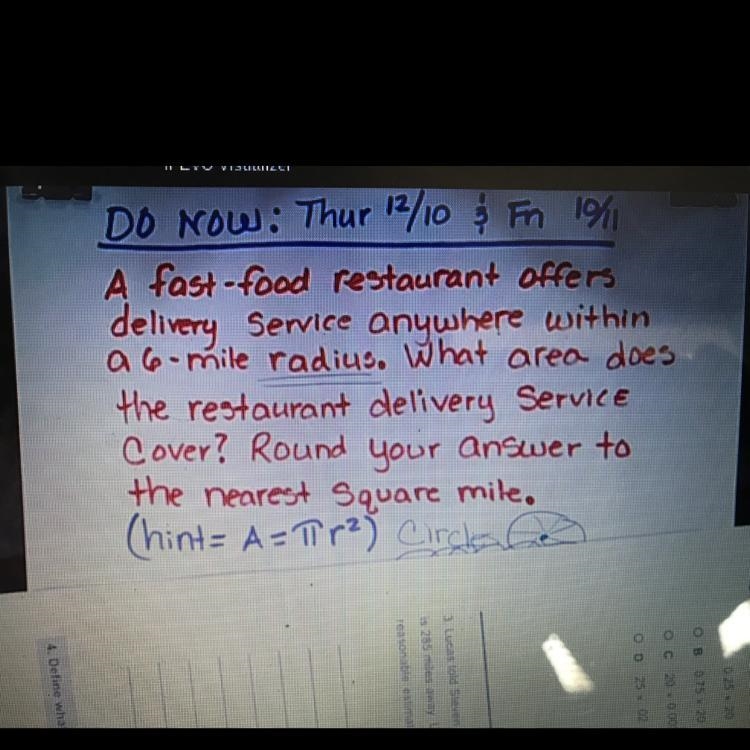 VISUALIZER
DO NOW: Thur 12/10 & Fri 10/11
A fast-food restaurant offers
delivery Service anywhere within
a 6-mile radius. What area does
the restaurant delivery Service
Cover? Round your answer to
the nearest Square mile.
(hint= A = πr²) Circle
0.25 × 20
O B 0.75 × 20
O C 20 × 0.00
O D 25 × 02
3. Lucas told Steven
is 285 miles away
reasonable estimat
4. Define wha